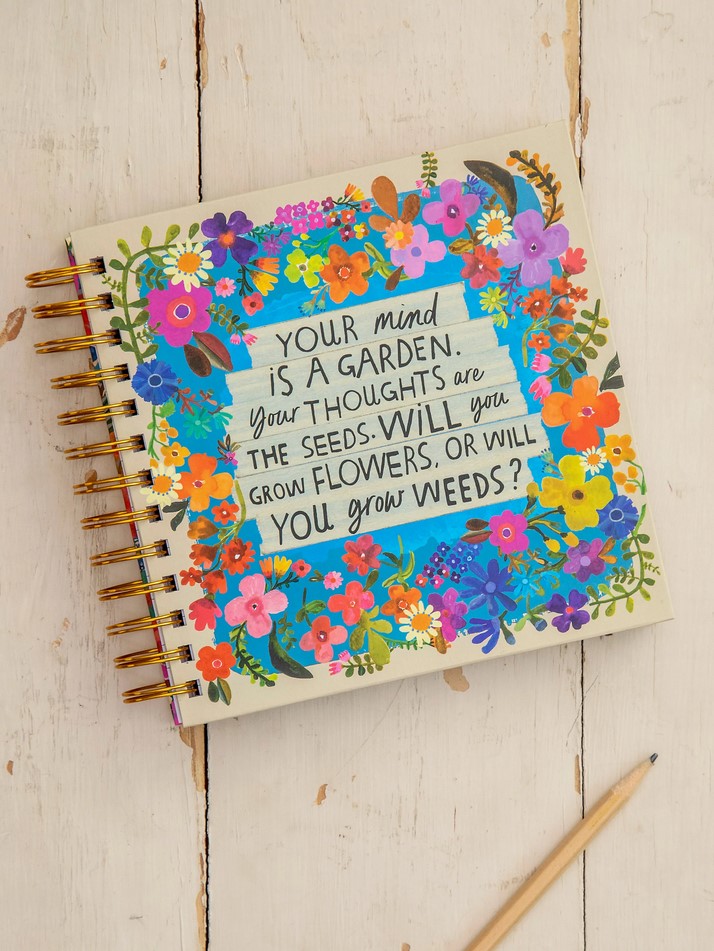 YOUR mind
iS A GARDEN.
Your THOUGHTS are
THE SEEDS. WiLL you
GROW FLOWERS, OR WiLL
YOU grow WEEDS?